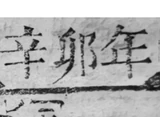 辛卯年